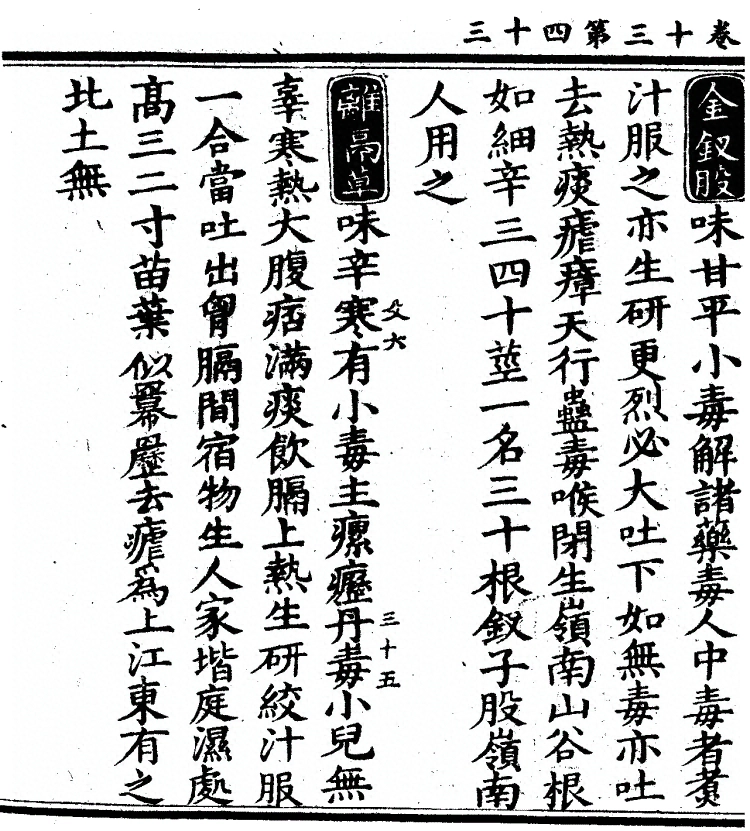 卷十三第四十三
金釵股味甘平小毒解諸藥毒人中毒者煮
汁服之亦生研更烈必大吐下如無毒亦吐
去熱痰瘧瘴天行蠱毒喉閉生嶺南山谷根
如細辛三四十莖一名三十根釵子股嶺南
人用之
六
三十五
離鬲草味辛寒有小毒主瘰癧丹毒小兒無
辜寒熱大腹痞滿痰飲膈上熱生研絞汁服
一合當吐出胷膈間宿物生人家堦庭濕處
髙三二寸苗葉似羃䍥去瘧爲上江東有之
北土無